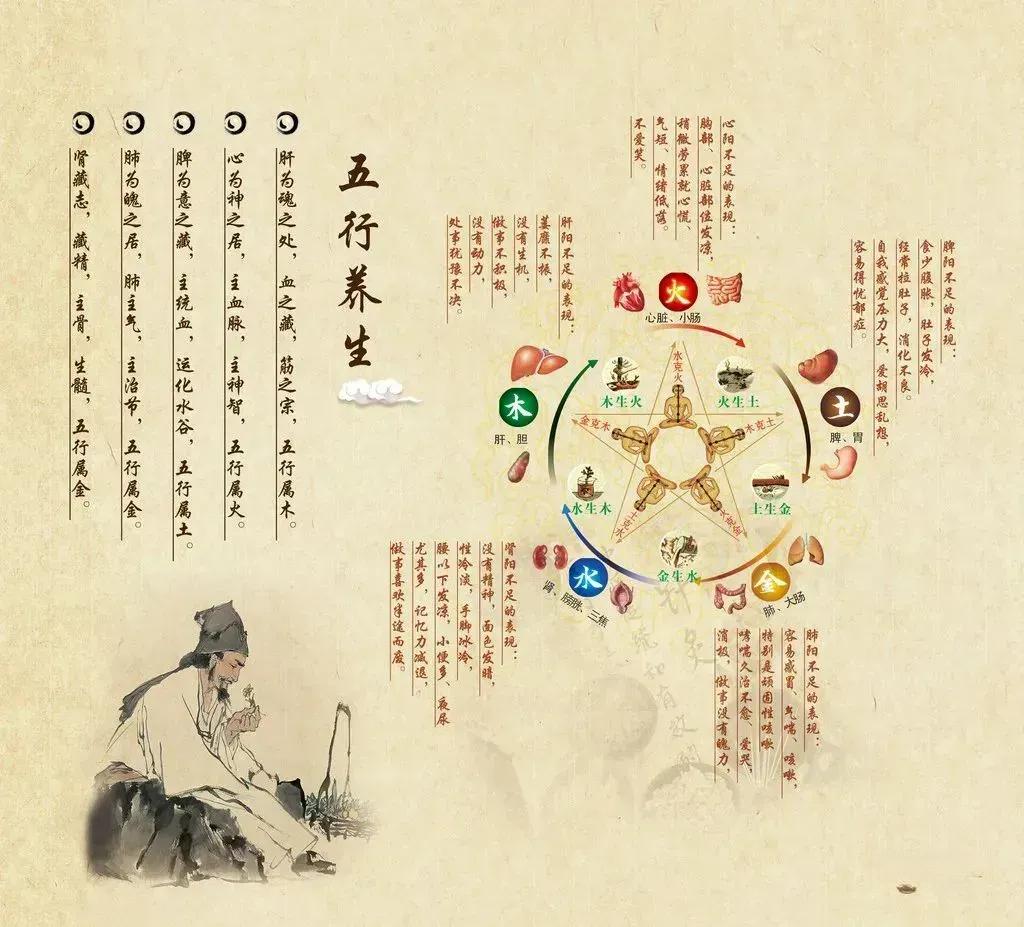 五行养生
肝为魂之处，血之藏，筋之宗，五行属木。
心为神之居，主血脉，主神智，五行属火。
脾为意之藏，主统血，运化水谷，五行属土。
肺为魄之居，肺主气，主治节，五行属金。
肾藏志，藏精，主骨，生髓，五行属金。
心阳不足的表现：
胸部、心脏部位发凉，
稍微劳累就心慌、
气短、情绪低落。
不爱笑。
肝阳不足的表现：
萎靡不振，
没有生机，
做事不积极，
没有动力，
处事犹豫不决。
脾阳不足的表现：
食少腹胀，肚子发冷，
经常拉肚子，消化不良。
自我感觉压力大，爱胡思乱想，
容易得忧郁症。
火
心脏、小肠
木
肝、胆
土
脾、胃
金
肺、大肠
水
肾、膀胱、三焦
木生火
火生土
土生金
金生水
水生木
水克火
金克木
木克土
土克水
肾阳不足的表现：
没有精神，面色发暗，
性冷淡，手脚冰冷，
腰以下发凉，小便多、夜尿
尤其多，记忆力减退，
做事喜欢半途而废。
肺阳不足的表现：
容易感冒、气喘、咳嗽，
特别是顽固性咳嗽
哮喘久治不愈、爱哭，
消极，做事没有魄力，